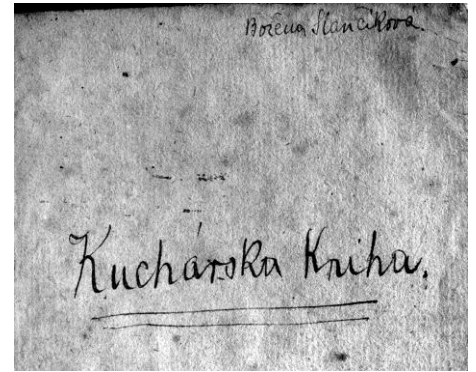 Božena Slančíková.
Kuchárska Kniha.